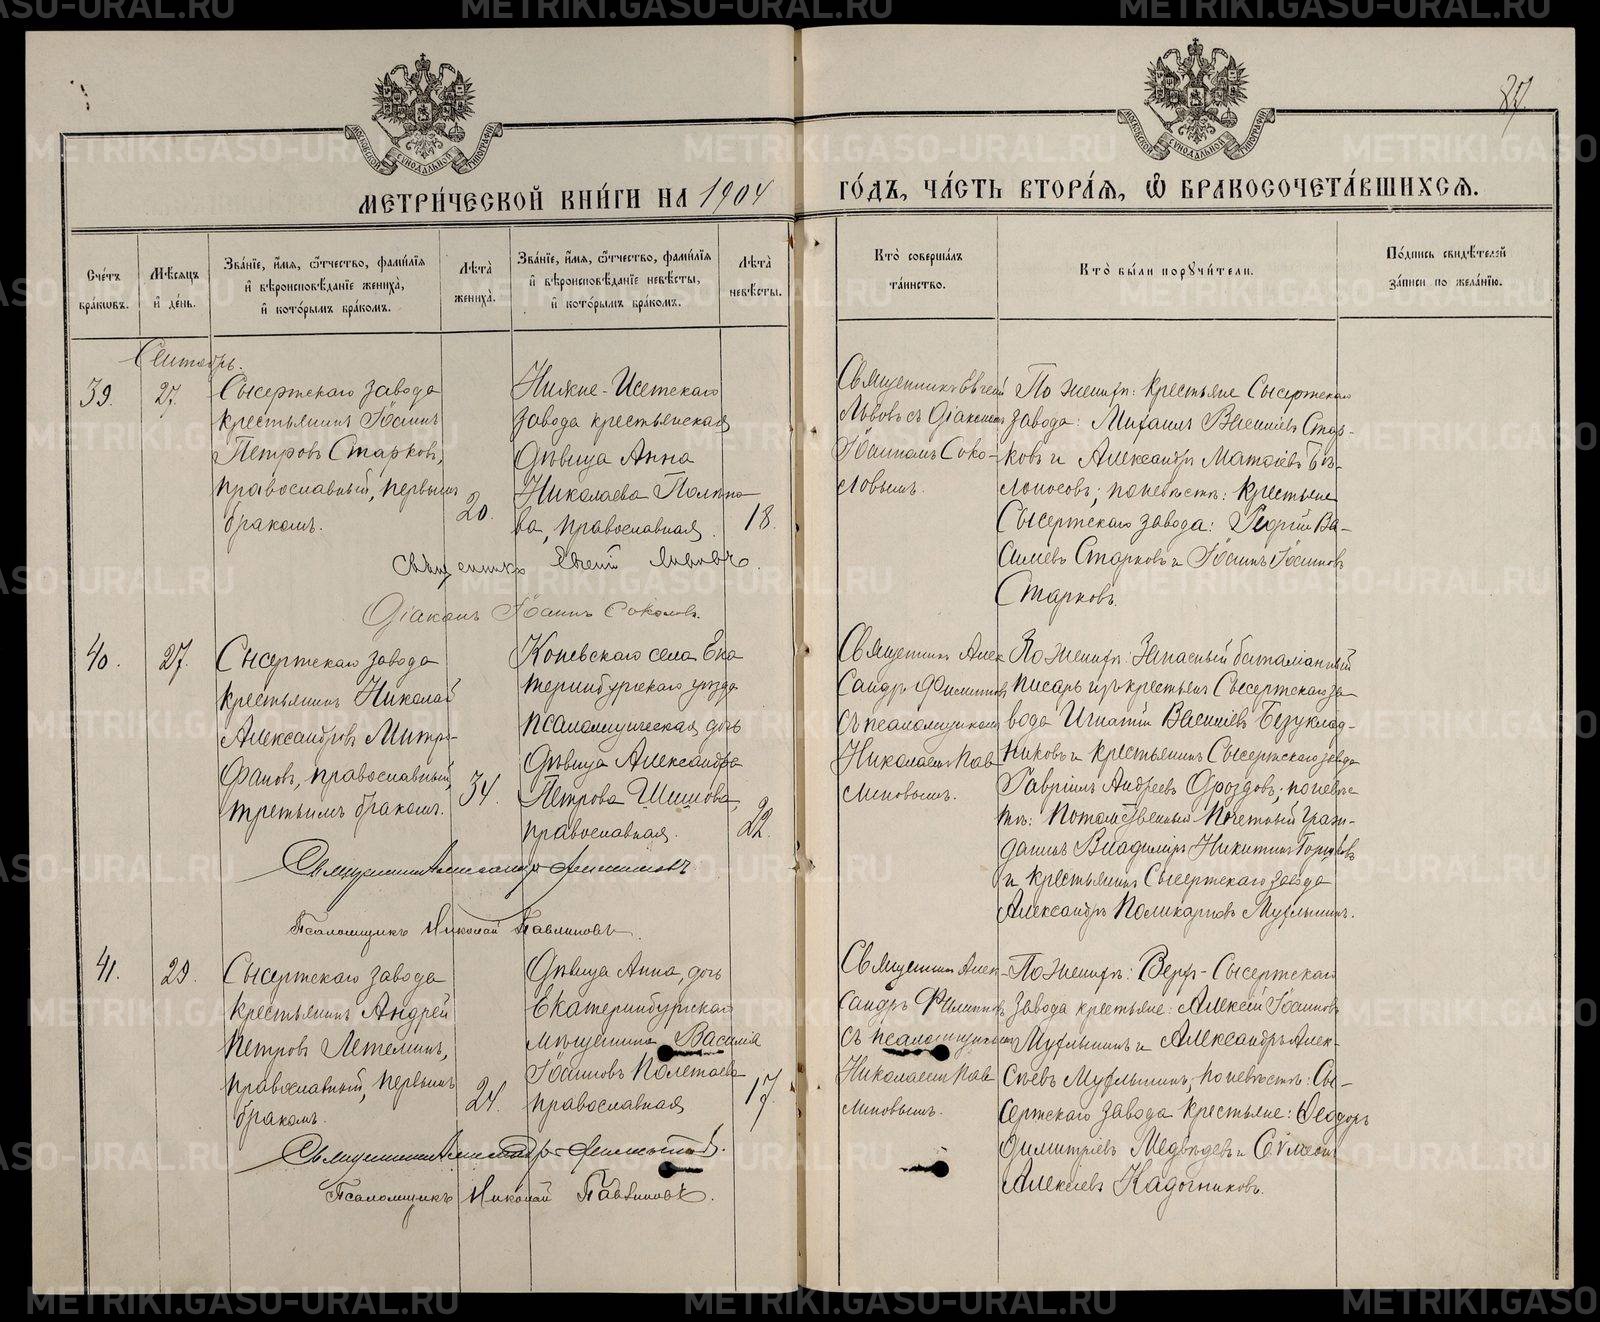 METRIKI.GASO-URAL.RU
87
МЕТРИ́ЧЕСКОЙ КНИ́ГИ НА 1904 ГО́ДЪ, ЧА́СТЬ ВТОРА́Я, Ѿ БРАКОСОЧЕТА́ВШИХСЯ.
Сче́тъ бра́кωвъ.
Мѣ́сяцъ и҆ де́нь.
Зва́нїе, и҆́мя, ѻ҆́тчество, фами́лїя
и҆ вѣроисповѣ́данїе жениха̀,
и҆ кото́рымъ бра́комъ.
Лѣта̀ жениха̀.
Зва́нїе, и҆́мя, ѻ҆́тчество, фами́лїя
и҆ вѣроисповѣ́данїе невѣ́сты,
и҆ кото́рымъ бра́комъ.
Лѣта̀ невѣ́сты.
Кто̀ соверша́лъ
та́инство.
Кто̀ бы́ли порꙋчи́тели.
По́дпись свидѣ́телей
за́писи по жела́нїю.
Сентябрь.
39.
27.
Сысертскаго завода
крестьянинъ Іоаннъ
Петровъ Старковъ,
православный, первымъ
бракомъ.
20.
Нижне-Исетскаго
завода крестьянская
дѣвица Анна
Николаева
ва, православная.
18.
Священникъ Евгеній
Львовъ съ діакономъ
Іоанномъ Соко-
ловымъ.
По женихѣ: крестьяне Сысертскаго
завода: Михаилъ Васильевъ Стар-
ковъ и Александръ Матѳіевъ Бѣ-
лоносовъ; по невѣстѣ: крестьяне
Сысертскаго завода: Георгій Ва-
сильевъ Старковъ и Іоаннъ Іоанновъ
Старковъ.
Священникъ Евгеній Львовъ.
Діаконъ Іоаннъ Соколовъ.
40.
27.
Сысертскаго завода
крестьянинъ Николай
Александровъ Митро-
фановъ, православный,
третьимъ бракомъ.
34.
Коневскаго села Ека
теринбургскаго уѣзда
псаломщическая дочь
дѣвица Александра
Петрова Шишова,
православная.
22.
Священникъ Алек
сандръ Филипповъ
съ псаломщикомъ
Николаемъ Пав
линовымъ.
По женихѣ: Запасный баталіонный
писарь изъ крестьянъ Сысертскаго за
вода Игнатій Васильевъ Безуклад-
никовъ и крестьянинъ Сысертскаго завода
Гавріилъ Андреевъ Дроздовъ; по невѣс
тѣ: Потомственный Почетный Граж-
данинъ Владиміръ Никитинъ
и крестьянинъ Сысертскаго завода
Александръ Поликарповъ Мухлынинъ.
Священникъ Александръ Филипповъ
Псаломщикъ Николай Павлиновъ.
41.
29.
Сысертскаго завода
крестьянинъ Андрей
Петровъ Летеминъ,
православный, первымъ
бракомъ.
24.
Дѣвица Анна, дочь
Екатеринбургскаго
мѣщанина Василія
Іоаннова Полетаева
православная
17.
Священникъ Алек-
сандръ Филипповъ
съ псаломщикомъ
Николаемъ Пав
линовымъ.
По женихѣ: Верх-Сысертскаго
завода крестьяне: Алексій Іоанновъ
Мухлынинъ и Александръ Алек-
сѣевъ Мухлынинъ, по невѣстѣ: Сы-
сертскаго завода крестьяне: Ѳеодоръ
Димитріевъ Медвѣдевъ и Сѵмеонъ
Алексіевъ Кадочниковъ.
Священникъ Александръ Филипповъ.
Псаломщикъ Николай Павлиновъ.